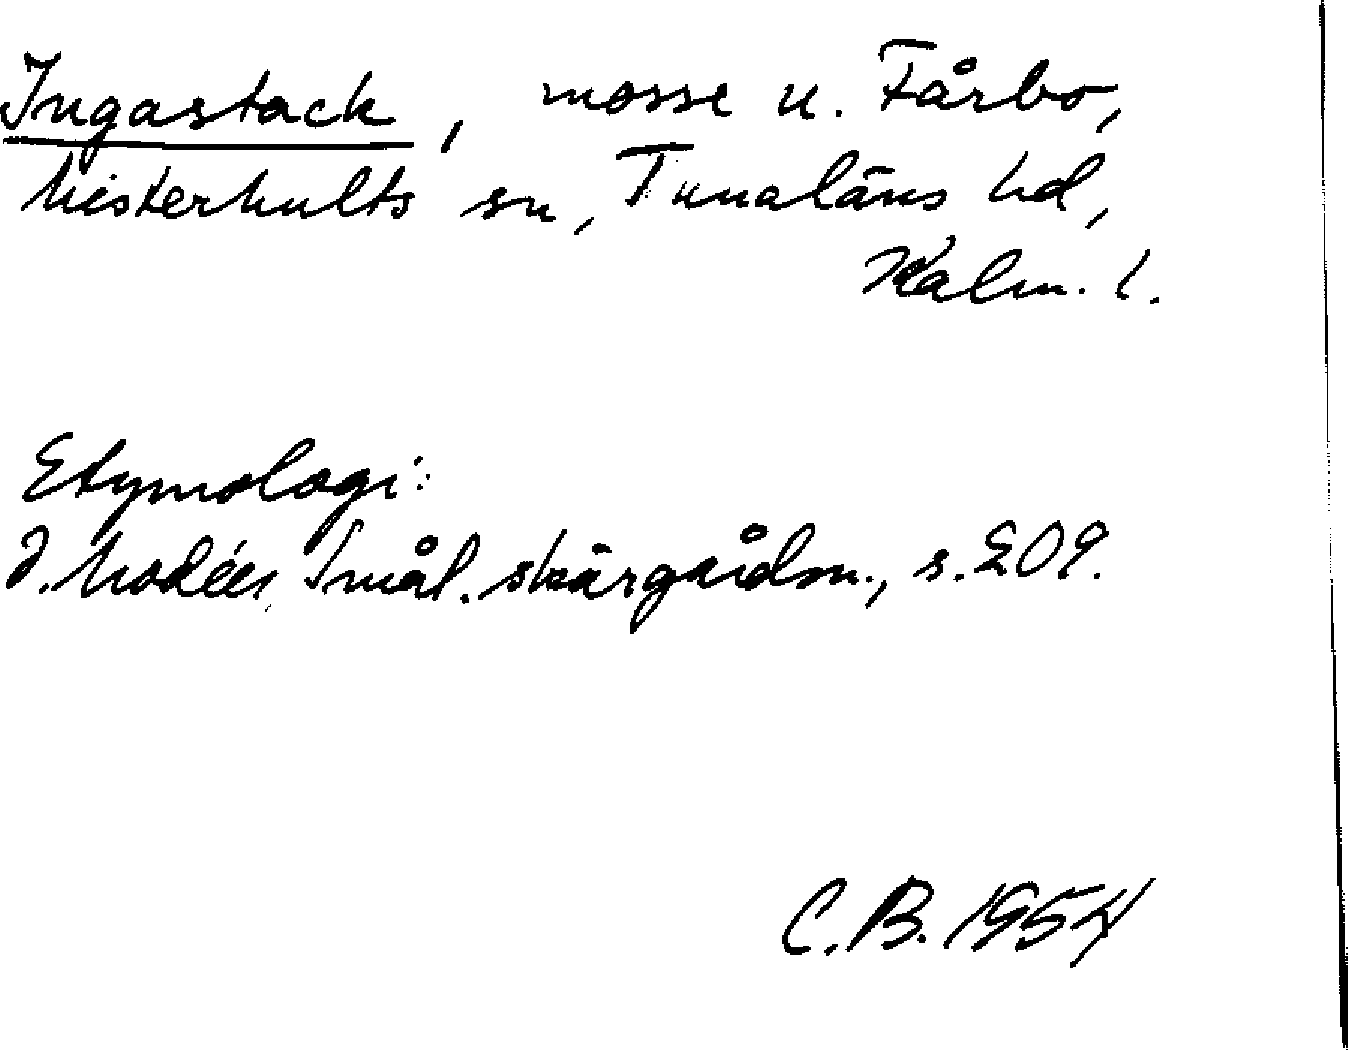 Ingastack, mosse u. Fårbo,
Misterhults sn, Tunaläns hd,
Kalm. l.
Etymologi:
I. Modéer, Smål. skärgårdsn., s. 209.
C.B. 1954